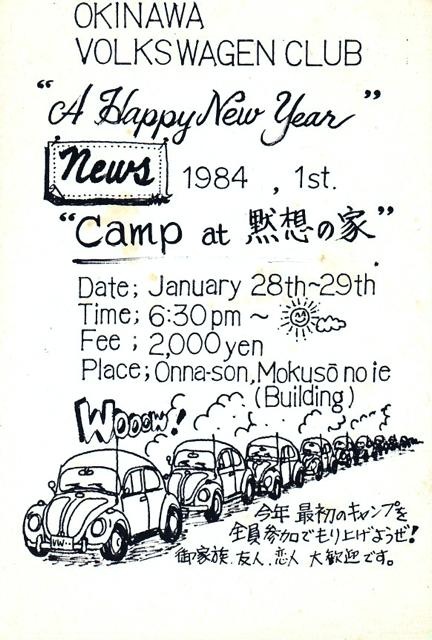 OKINAWA
VOLKSWAGEN CLUB
“A Happy New Year”
News 1984 , 1st.
“Camp at 黙想の家”
Date; January 28th~29th
Time; 6:30pm ~
Fee ; 2,000yen
Place; Onna-son, Mokusō no ie
(Building)
Wooow!
VW..
今年 最初のキャンプを
全員参加でもり上げようぜ!
御家族.友人.恋人 大歓迎です。